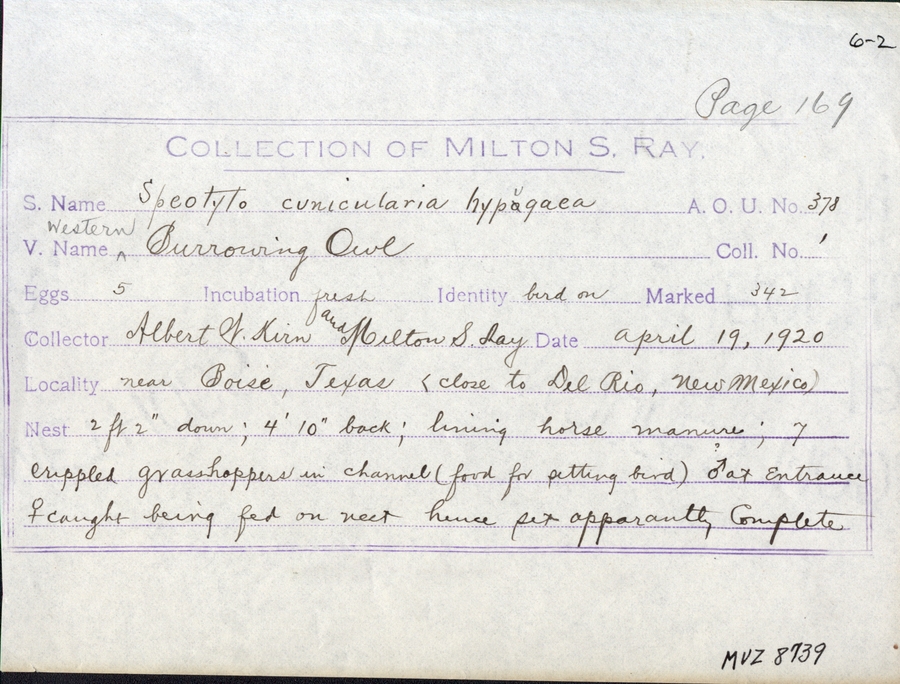 6-2
Page 169
COLLECTION OF MILTON S. RAY.
S. Name Speotyto cunicularia hypugaea A. O. U. No. 378
Western
V. Name ^ Burrowing Owl Coll. No. 1
Eggs 5 Incubation fresh Identity bird on Marked 342
Collector Albert W. Kirn and Milton S. Ray Date april 19, 1920
Locality near Boise, Texas (close to Del Rio, New Mexico)
Nest 2 ft 2" down; 4' 10" back; lining horse manure; 7
crippled grasshoppers in channel (food for setting bird) ♂ at Entrance
♀ caught being fed on nest hence set apparantly Complete
MVZ 8739